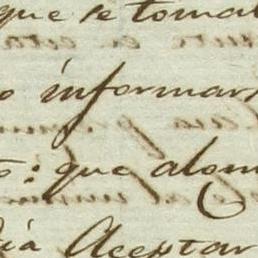 que se tomar
o informars
to: que alom
dia Aceptar